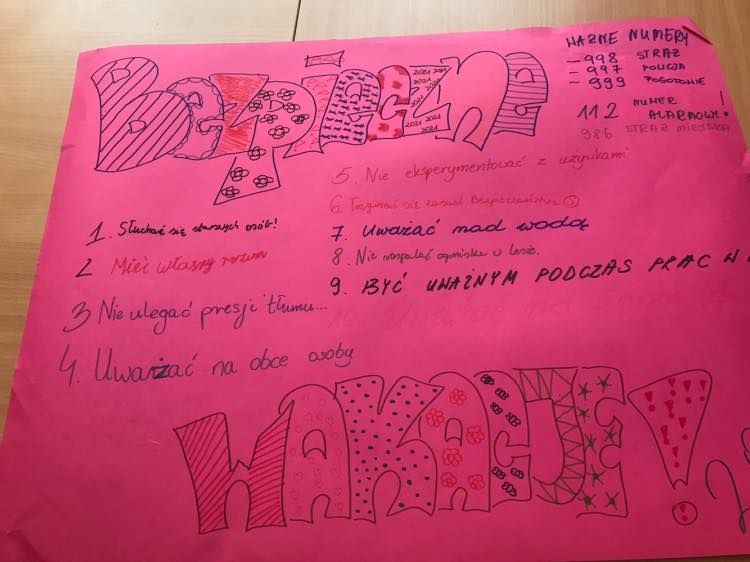 Bezpieczne
WAŻNE NUMERY
– 998 STRAŻ
– 997 POLICJA
– 999 POGOTOWIE
112 NUMER ALARMOWY!
986 STRAŻ MIEJSKA
1. Słuchać się starszych osób!
2 Mieć własny rozum
3 Nie ulegać presji tłumu...
4. Uważać na obce osoby
5. Nie eksperymentować z używkami
6. Trzymać się zasad Bezpieczeństwa
7. Uważać nad wodą
8. Nie rozpalać ogniska w lesie.
9. BYĆ UWAŻNYM PODCZAS PRAC W
10. Uważać
WAKACJE!